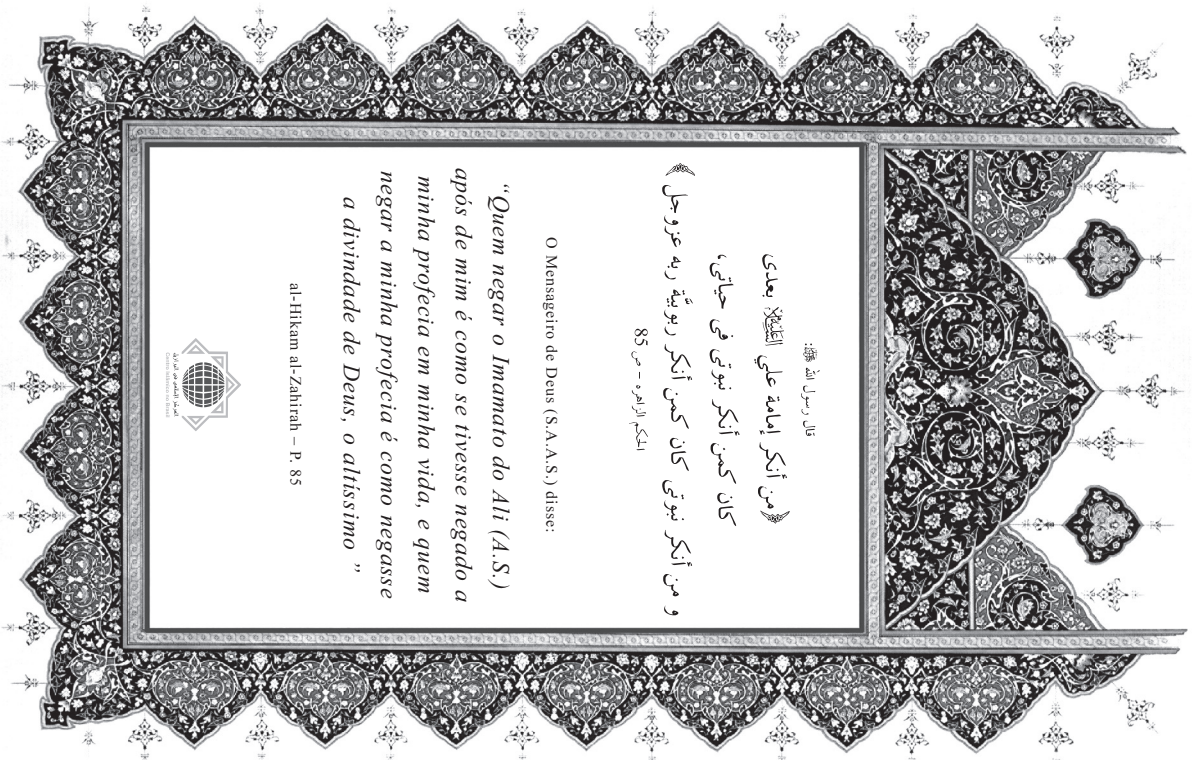 قال رسول الله ﷺ:
﴿من أنكر إمامة علي عليه السلام بعدى
كان كمن أنكر نبوتى فى حياتى،
و من أنكر نبوتى كان كمن أنكر ربوبيّة ربه عزوجل﴾
الحكم الزاهره – ص 85
O Mensageiro de Deus (S.A.A.S.) disse:
“Quem negar o Imamato do Ali (A.S.)
após de mim é como se tivesse negado a
minha profecia em minha vida, e quem
negar a minha profecia é como negasse
a divindade de Deus, o altíssimo ”
al-Hikam al-Zahirah – P. 85
المركز الإسلامي في البرازيل
Centro Islâmico no Brasil